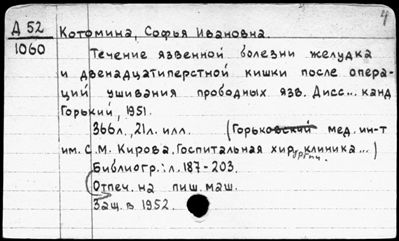 4
Д 52
1060
Котомина, Софья Ивановна.
Течение язвенной болезни желудка
и двенадцатиперстной кишки после опера-
ций ушивания прободных язв. Дисс... канд
Горький, 1951.
366л., 21л. илл. (Горьковский мед. ин-т
им. С.М. Кирова. Госпитальная хирургич. клиника...)
Библиогр.: л. 187-203.
Отпеч. на пиш. маш.
Защ. в 1952.